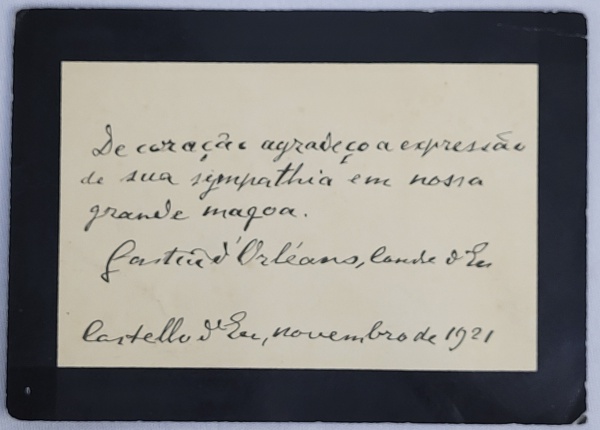 De coração agradeço a expressão
de sua sympathia em nossa
grande magoa.
Gastão d'Orléans, Conde d'Eu
Castello d'Eu, novembro de 1921